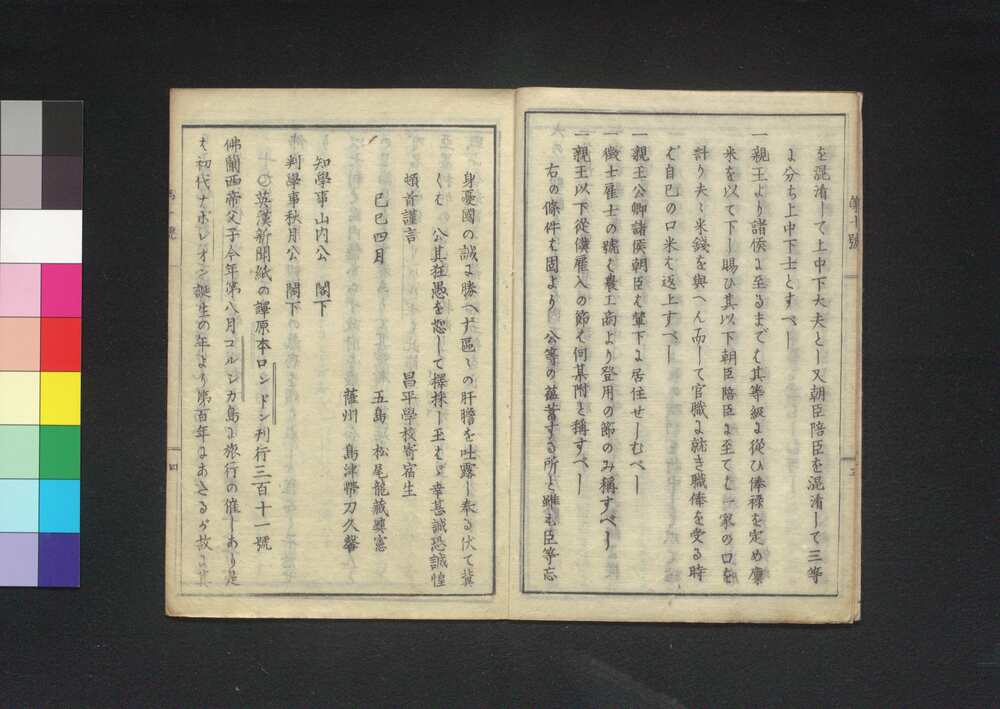 を混淆して上中下大夫とし又朝臣陪臣を混淆して三等
に分ち上中下士とすべし
一親王より諸侯に至るまでも其等級に從ひ俸祿を定め廩
米を以て下し賜ひ其以下朝臣陪臣に至ても一家の口を
計り夫々米錢を與へん而して官職に就き職俸を受る時
は自己の口米も返上すべし
一親王公卿諸侯朝臣も輦下に居住せしむべし
一徴士雇士の號も農工商より登用の節のみ稱すべし
一親王以下從僕雇入の節も何某附と稱すべし
右の條件も固より 公等の薀蓄する所と雖も臣等忘
身憂國の誠に勝へず區々の肝膽を吐露し奉る伏て冀
くは 公其狂愚を恕して擇採し玉はゞ幸甚誠恐誠惶
頓首謹言
昌平學校寄宿生
己巳四月 五島 松尾龍藏
薩州 島津帶刀久馨
知學事山内公 閣下
判學事秋月公 閣下
○英漢新聞紙の譯原本ロンドン刋行三百十一號
佛蘭西帝父子今年第八月コルシカ島に旅行の催しあり是
は初代ナポレオン誕生の年より第百年にあたるが故に其
第十號
四